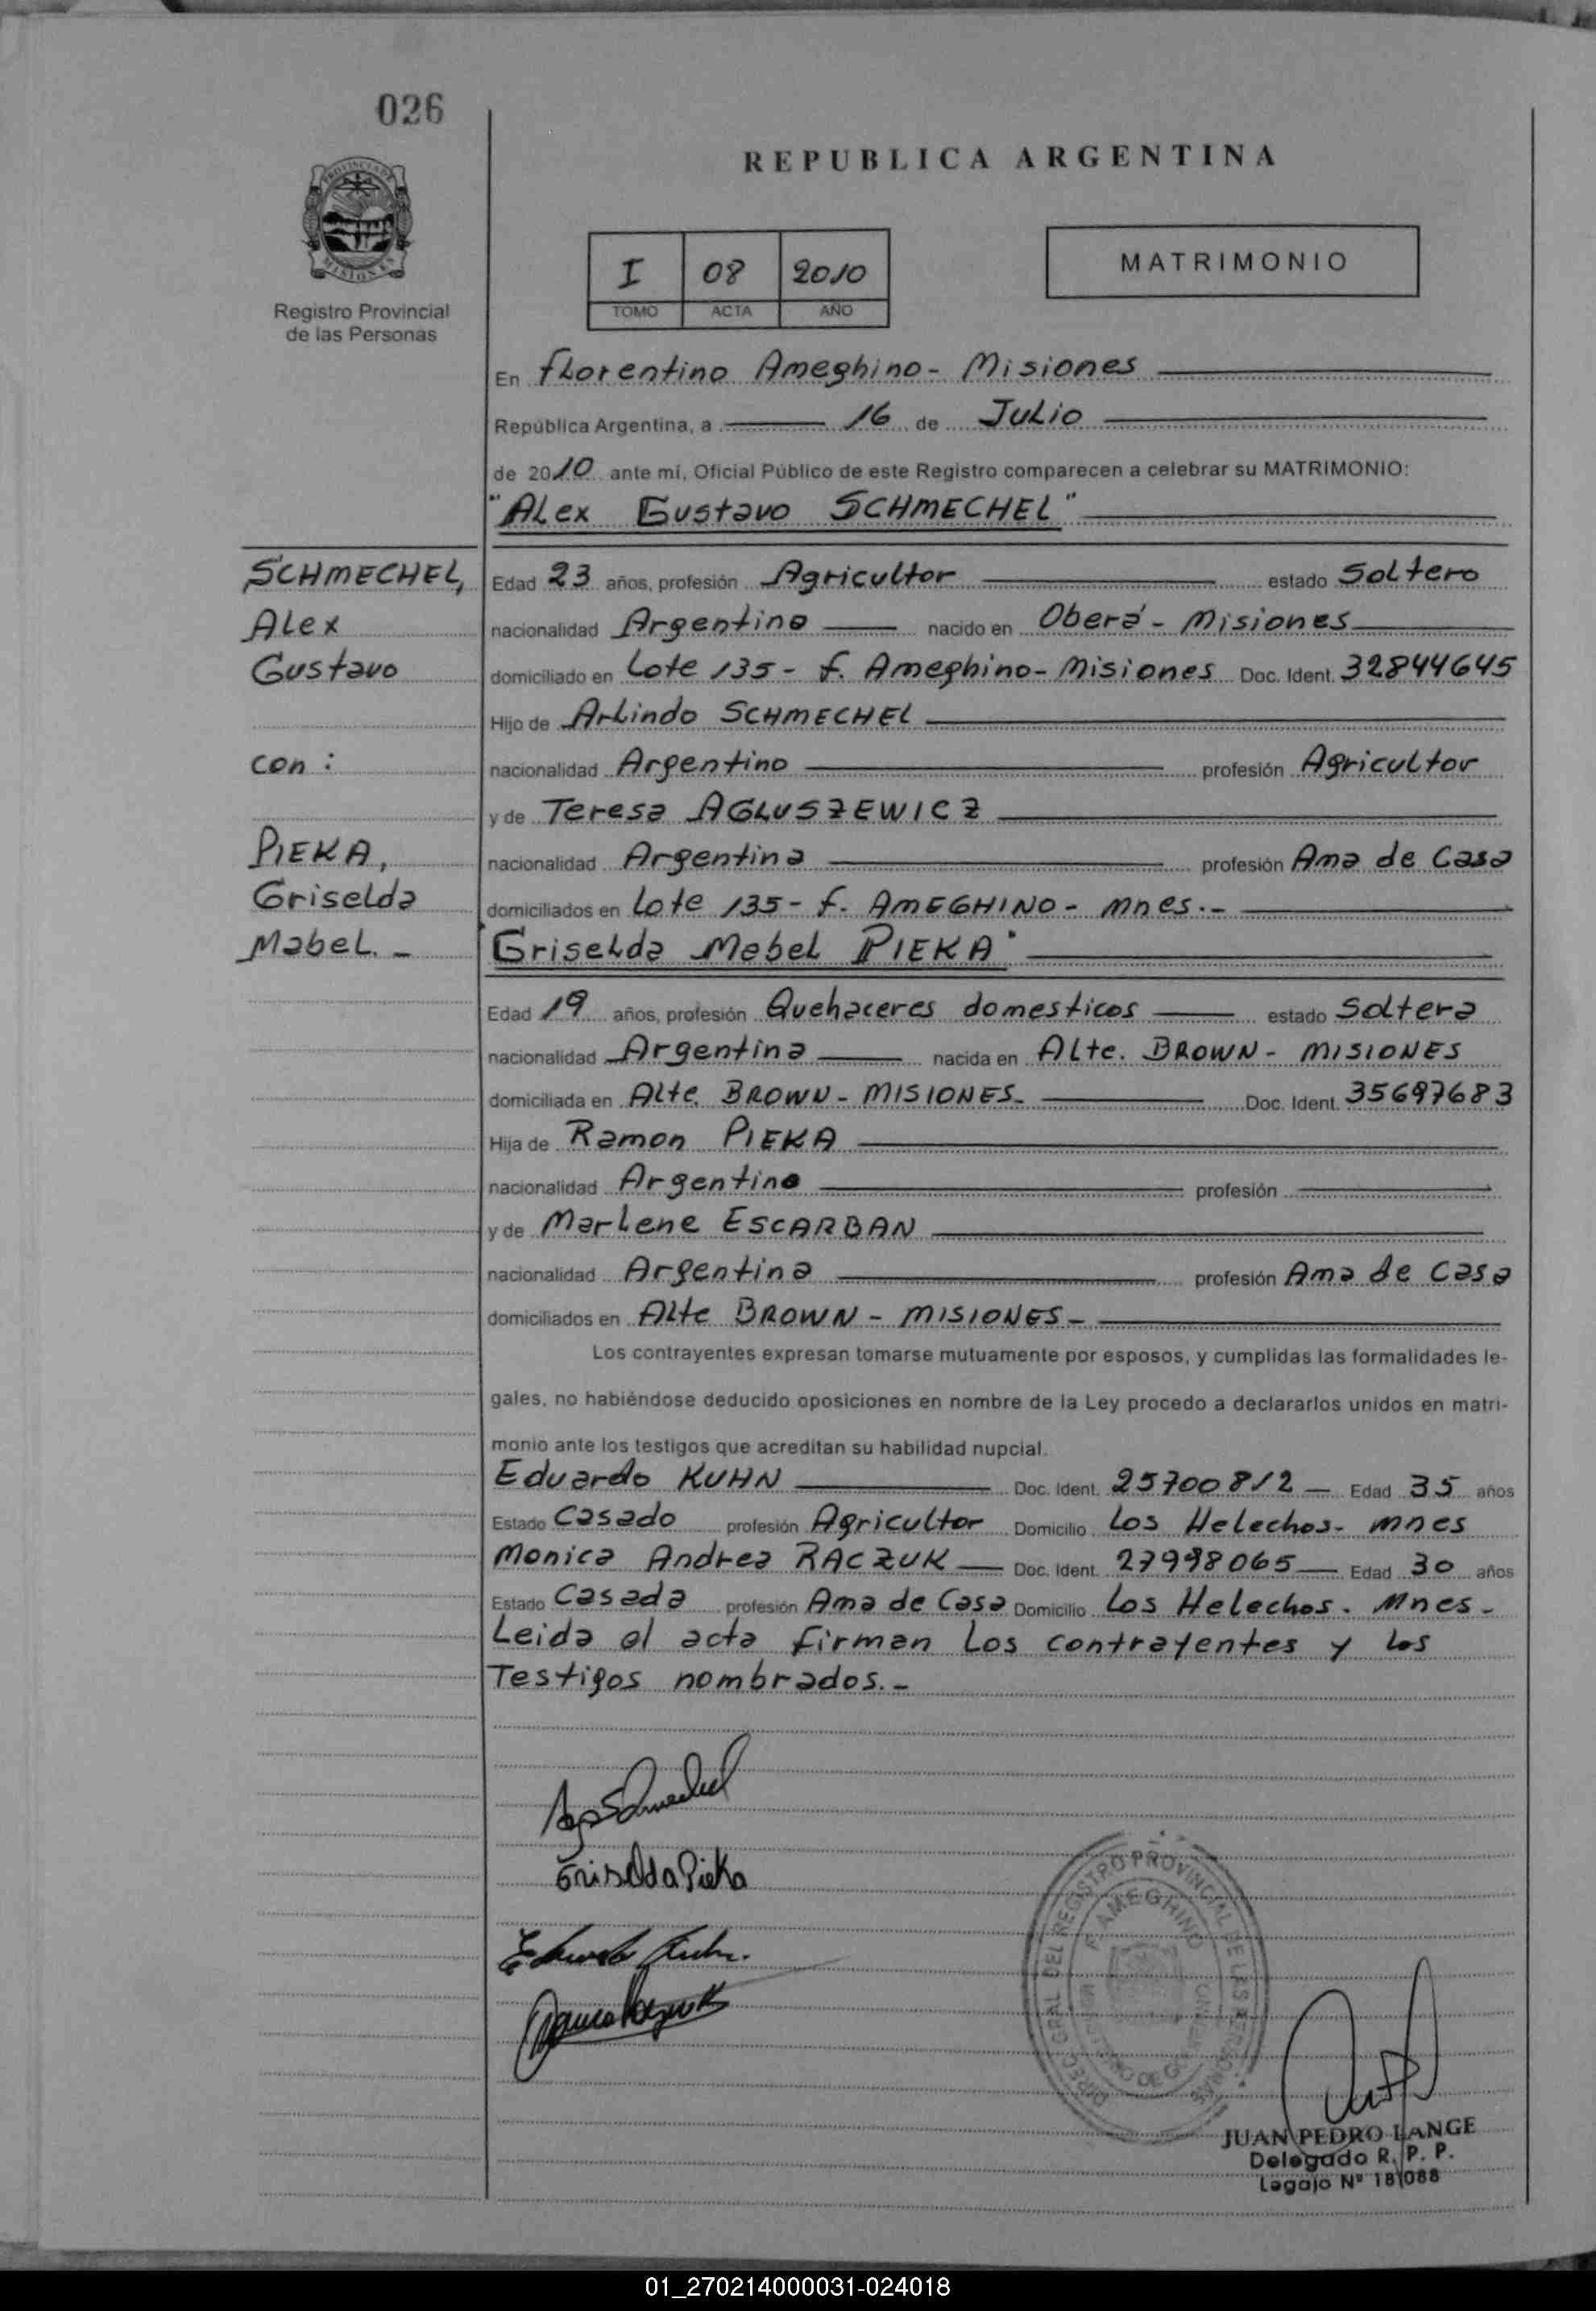 026
REPUBLICA ARGENTINA
PROVINCIA DE MISIONES
Registro Provincial
de las Personas
I 08 2010
TOMO ACTA AÑO
MATRIMONIO
En Florentino Ameghino - Misiones
República Argentina, a 16 de Julio
de 2010 ante mí, Oficial Público de este Registro comparecen a celebrar su MATRIMONIO:
"Alex Gustavo SCHMECHEL"
SCHMECHEL,
Alex
Gustavo
con :
PIEKA,
Griselda
Mabel. -
Edad 23 años, profesión Agricultor estado Soltero
nacionalidad Argentino nacido en Oberá - Misiones
domiciliado en Lote 135 - F. Ameghino - Misiones Doc. Ident. 32844645
Hijo de Arlindo SCHMECHEL
nacionalidad Argentino profesión Agricultor
y de Teresa AGLUSZEWICZ
nacionalidad Argentina profesión Ama de Casa
domiciliados en Lote 135 - F. AMEGHINO - Mnes. -
"Griselda Mabel PIEKA"
Edad 19 años, profesión Quehaceres domesticos estado Soltera
nacionalidad Argentina nacida en Alte. BROWN - MISIONES
domiciliada en Alte. BROWN - MISIONES - Doc. Ident. 35697683
Hija de Ramon PIEKA
nacionalidad Argentino profesión
y de Marlene ESCARBAN
nacionalidad Argentina profesión Ama de Casa
domiciliados en Alte BROWN - MISIONES -
Los contrayentes expresan tomarse mutuamente por esposos, y cumplidas las formalidades le-
gales, no habiéndose deducido oposiciones en nombre de la Ley procedo a declararlos unidos en matri-
monio ante los testigos que acreditan su habilidad nupcial.
Eduardo KUHN Doc. Ident. 25700812 - Edad 35 años
Estado Casado profesión Agricultor Domicilio Los Helechos - Mnes
Monica Andrea RACZUK Doc. Ident. 27998065 - Edad 30 años
Estado Casada profesión Ama de Casa Domicilio Los Helechos. Mnes -
Leida el acta firman los contrayentes y los
Testigos nombrados. -
Griselda Pieka
DIREC. GRAL. DEL REGISTRO PROVINCIAL DE LAS PERSONAS
F. AMEGHINO
JUAN PEDRO LANGE
Delegado R. P. P.
Legajo Nº 18\088
01_270214000031-024018